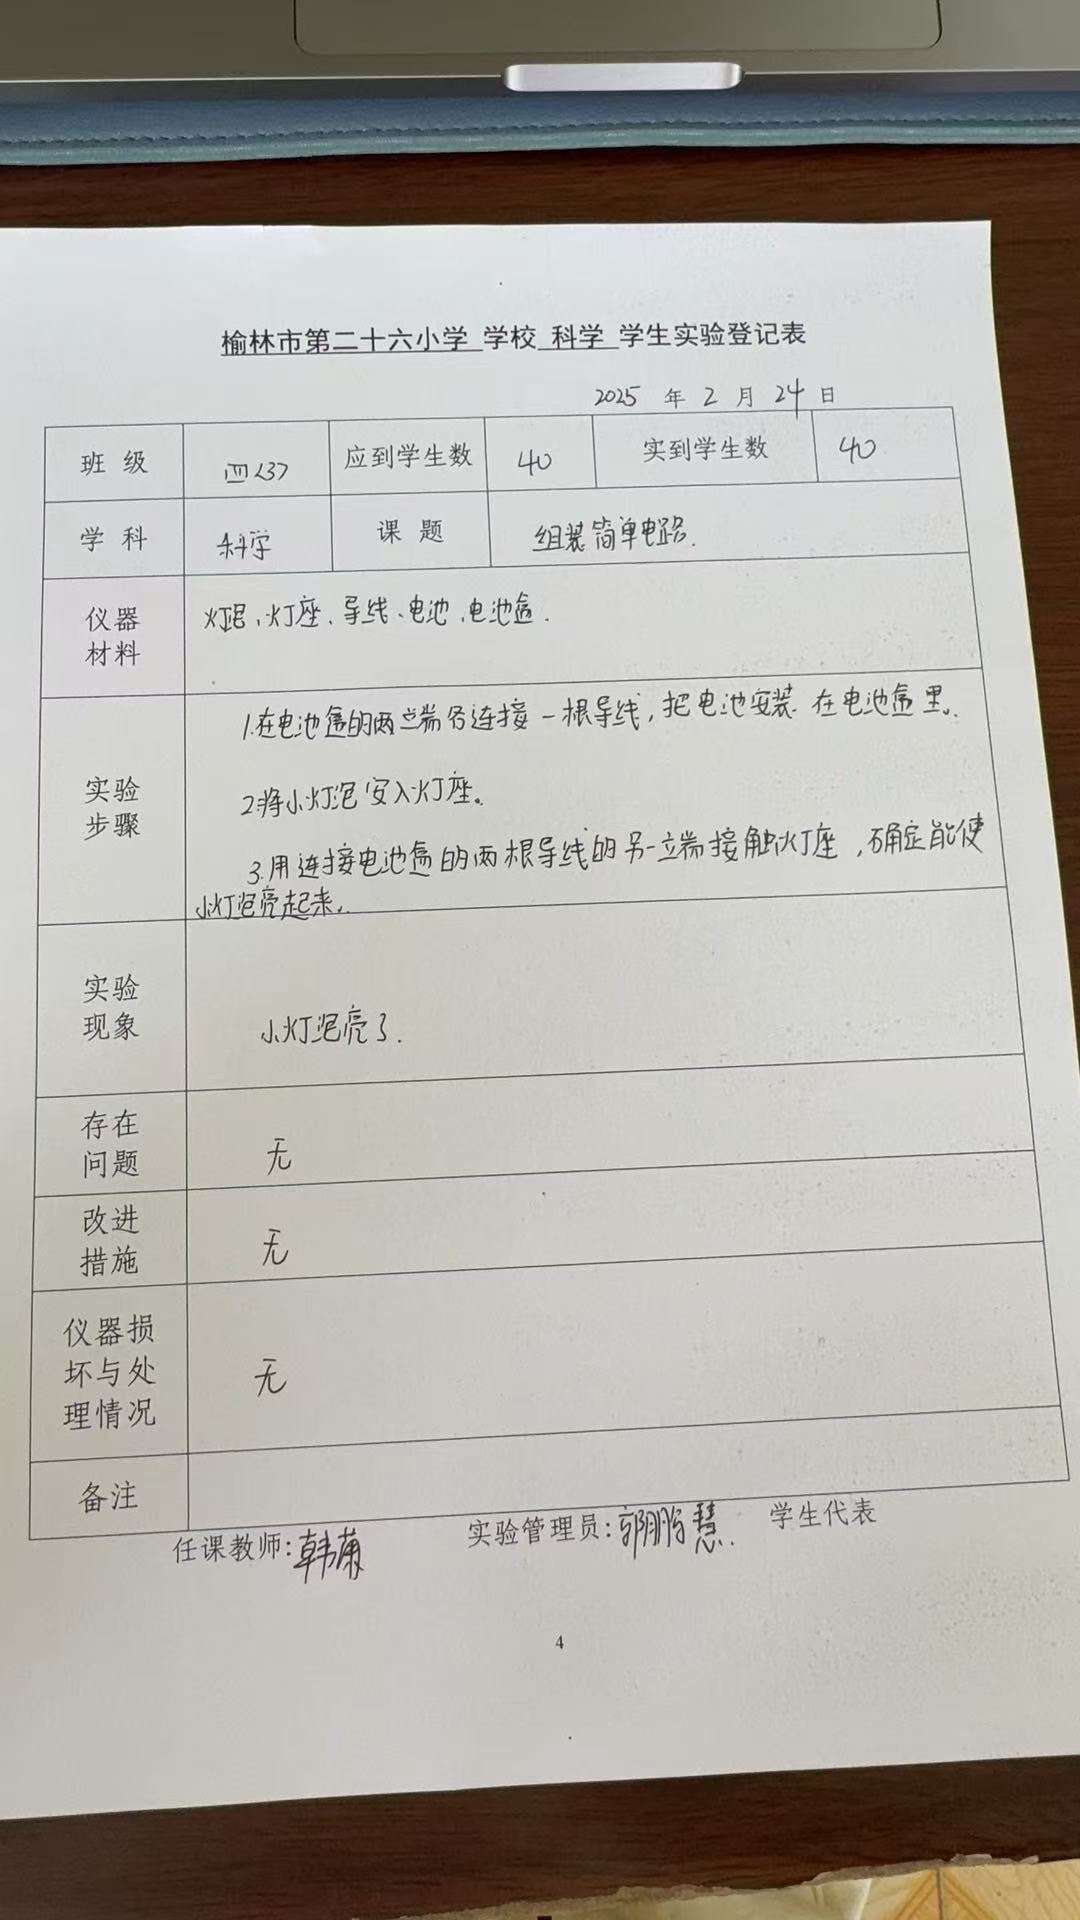 榆林市第二十六小学 学校 科学 学生实验登记表
2025 年 2 月 24 日
班 级 四<3> 应到学生数 40 实到学生数 40
学 科 科学 课 题 组装简单电路.
仪器
材料
灯泡、灯座、导线、电池、电池盒.
实验
步骤
1.在电池盒的两端各连接一根导线,把电池安装在电池盒里。
2.将小灯泡安入灯座。
3.用连接电池盒的两根导线的另一端接触灯座,确定能使
小灯泡亮起来.
实验
现象
小灯泡亮了.
存在
问题
无
改进
措施
无
仪器损
坏与处
理情况
无
备注
任课教师: 实验管理员: 学生代表
4